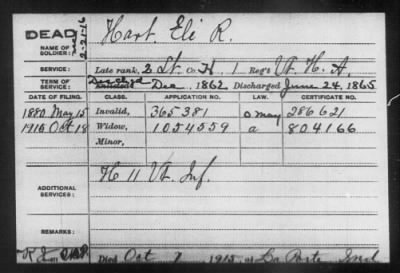 DEAD
NAME OF SOLDIER:
2-21-16
Hart. Eli R.
SERVICE:
Late rank, 2 Lt. Co. H, 1 Reg't Vt. H. A.
TERM OF SERVICE:
Enlisted Dec, 1862 Discharged June 24, 1865
DATE OF FILING. CLASS. APPLICATION NO. LAW. CERTIFICATE NO.
1880 May 15 Invalid, 365381 286621
1916 Oct 18 Widow, 1054559 a 804166
Minor,
ADDITIONAL SERVICES:
H 11 Vt. Inf.
REMARKS:
Died Oct 7, 1915, at La Porte Ind